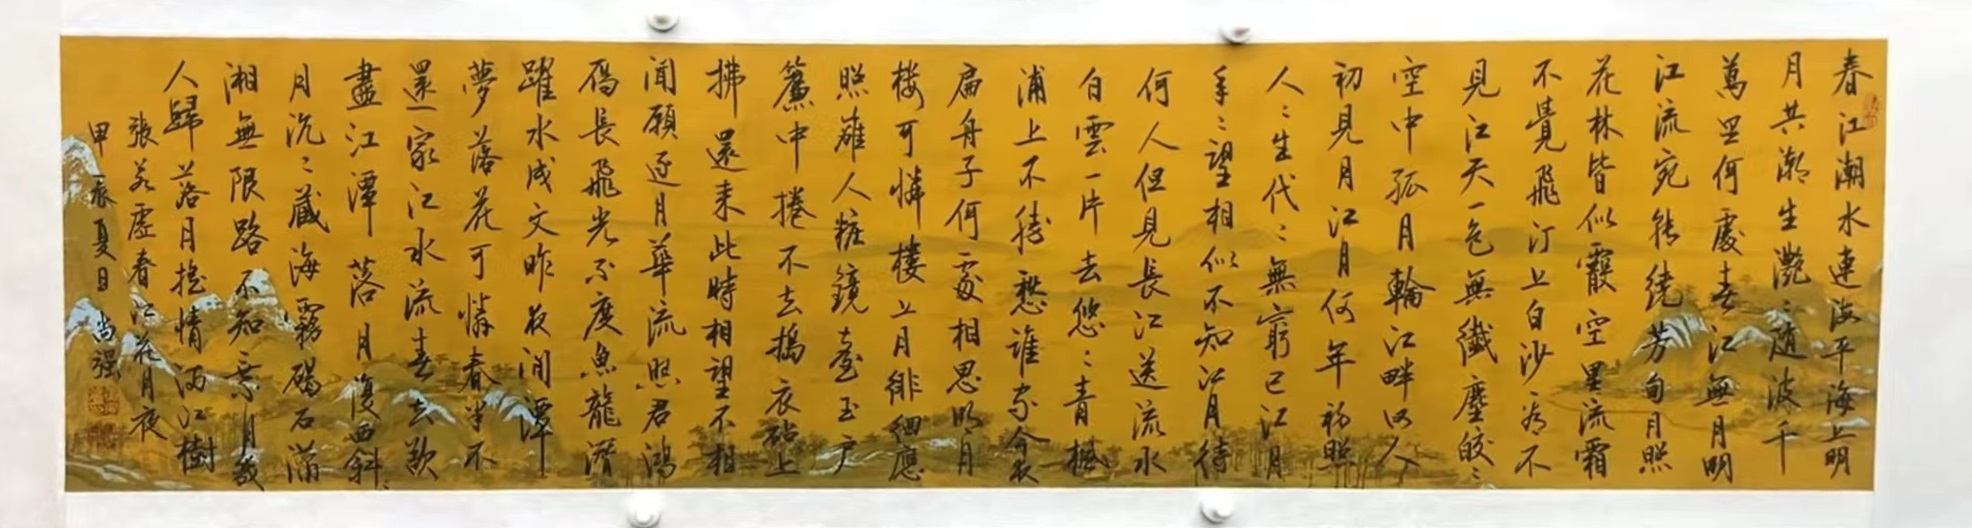 春江潮水連海平海上明
月共潮生灧灧隨波千
萬里何處春江無月明
江流宛轉繞芳甸月照
花林皆似霰空里流霜
不覺飛汀上白沙看不
見江天一色無纖塵皎〻
空中孤月輪江畔何人
初見月江月何年初照
人〻生代〻無窮已江月
年〻望相似不知江月待
何人但見長江送流水
白雲一片去悠〻青楓
浦上不待愁誰家今夜
扁舟子何處相思明月
樓可憐樓上月徘徊應
照離人粧鏡臺玉户
簾中捲不去搗衣砧上
拂還来此時相望不相
聞願逐月華流照君鴻
雁長飛光不度魚龍潛
躍水成文昨夜閒潭
夢落花可憐春半不
還家江水流春去欲
盡江潭落月復西斜〻
月沉〻藏海霧碣石瀟
湘無限路不知乘月幾
人歸落月揺情滿江樹
張若虚春江花月夜
甲辰夏日尚强